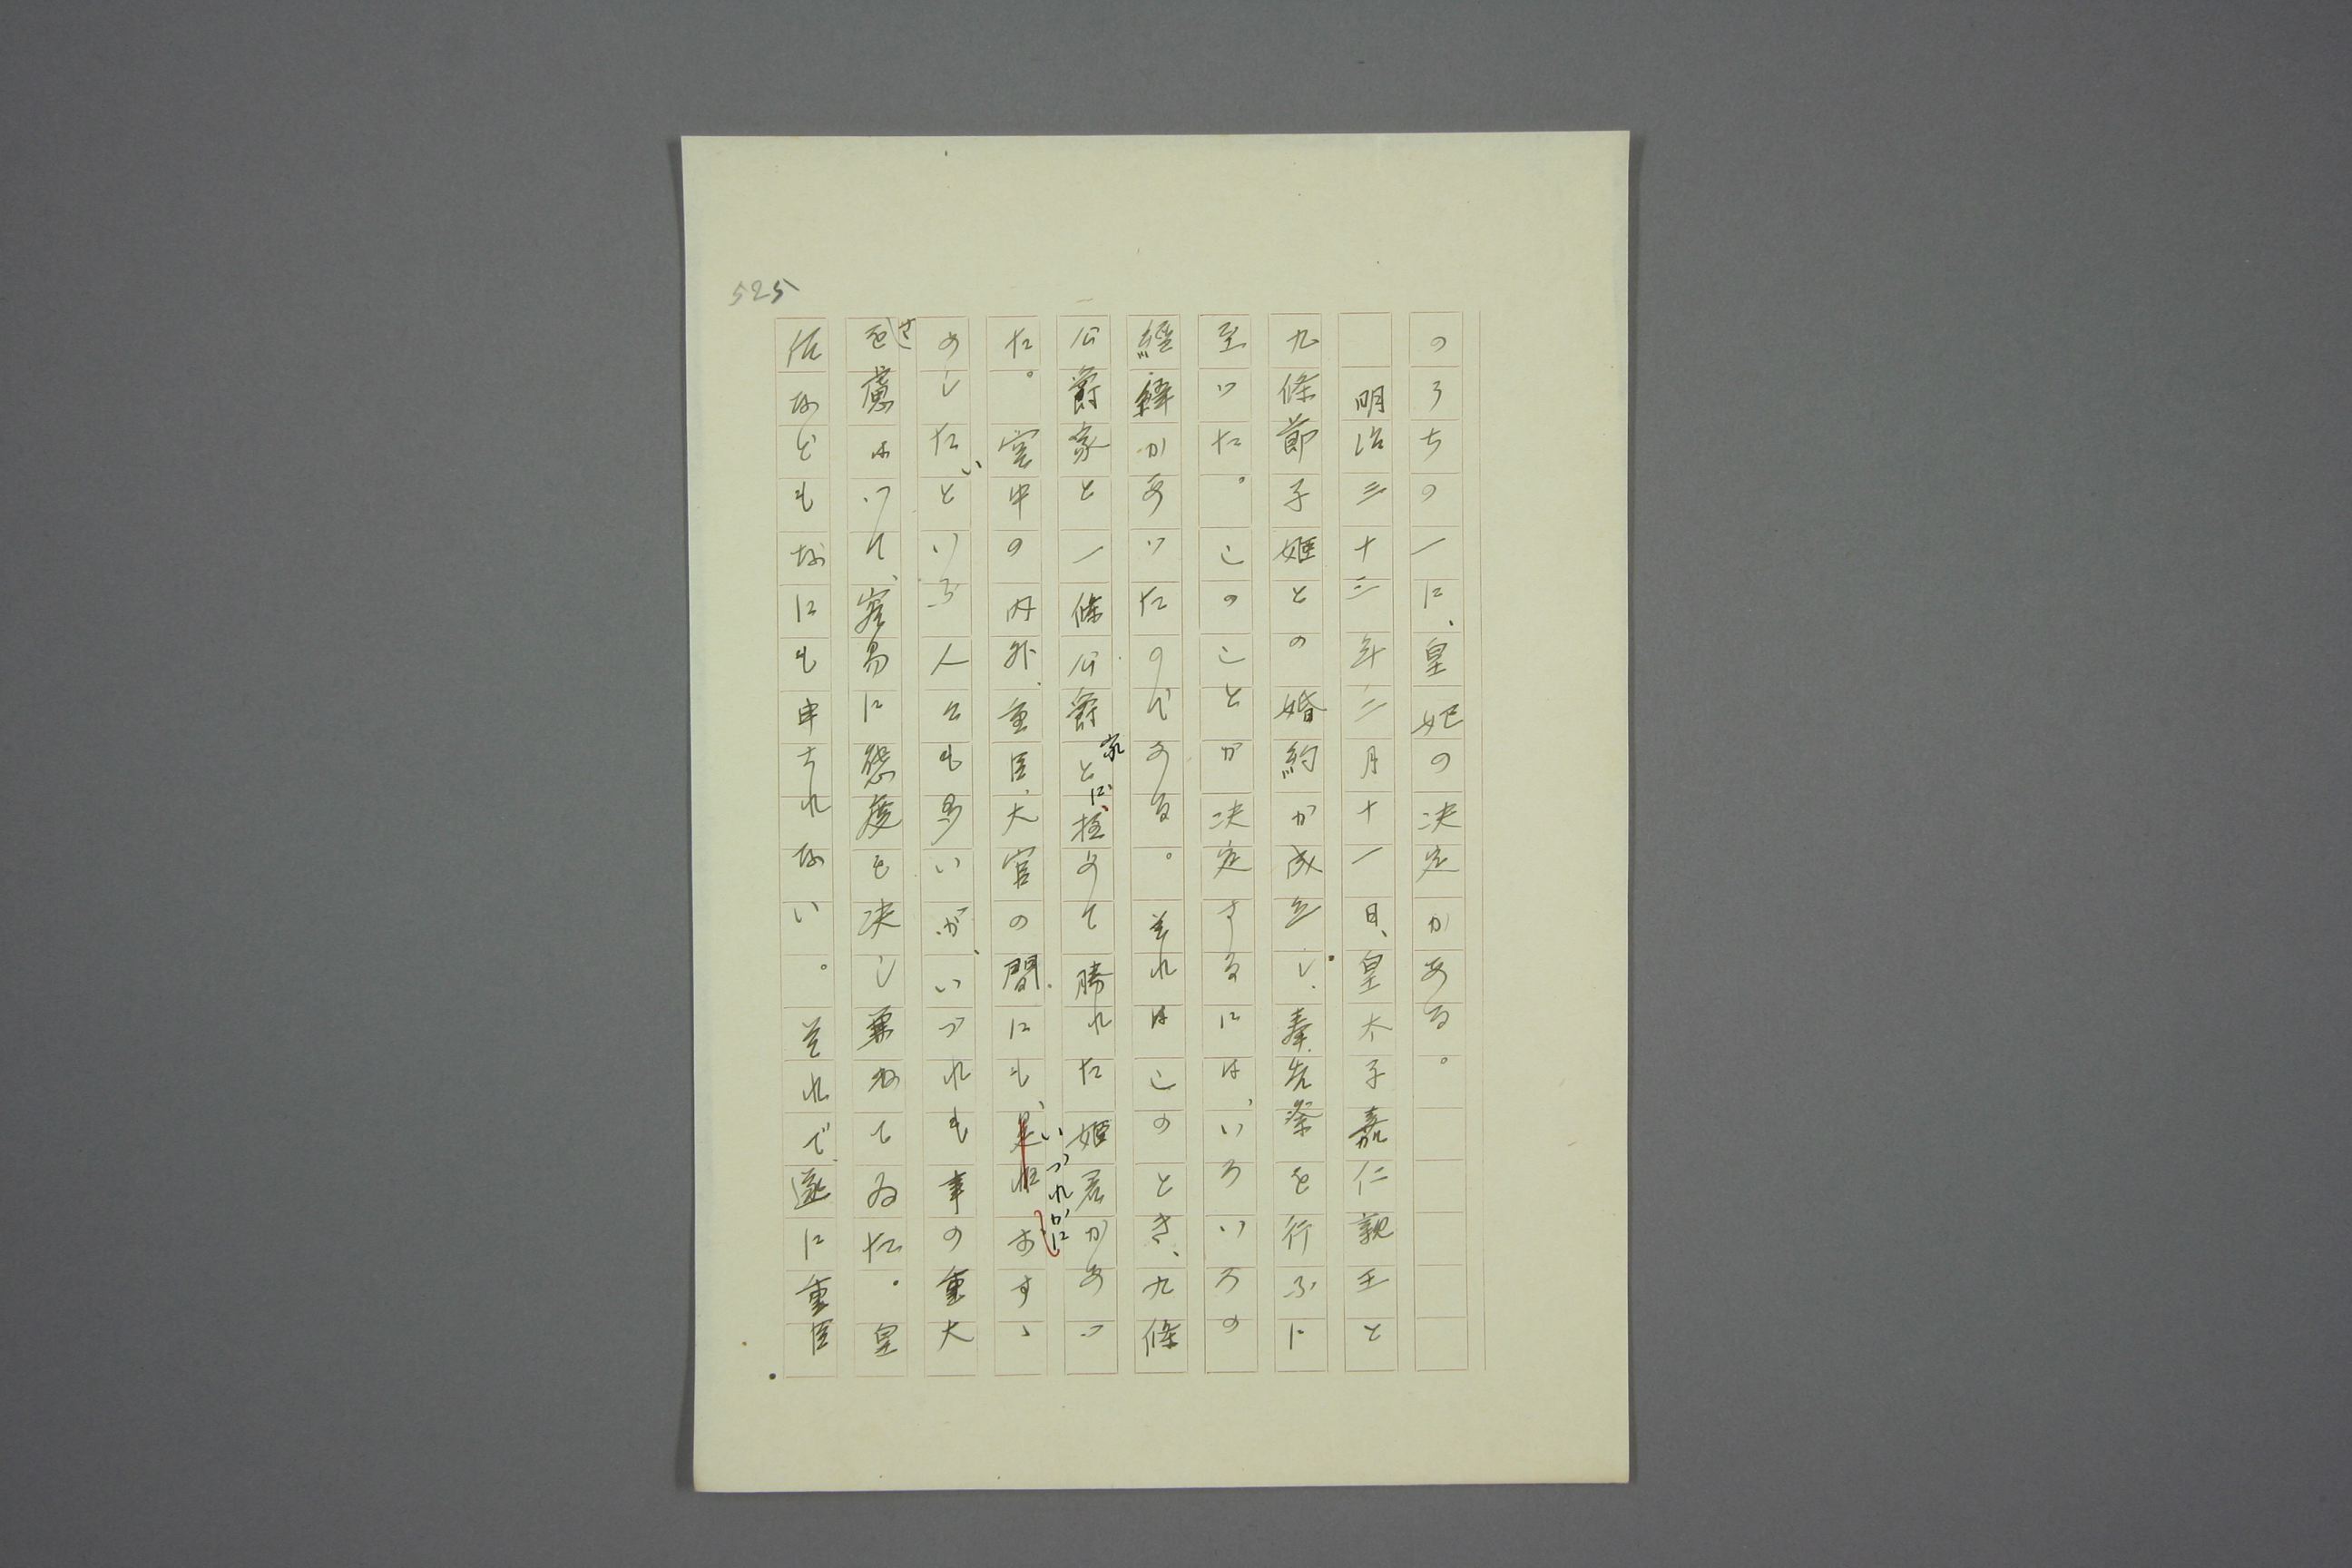 525
のうちの一に、皇妃の決定がある。
明治三十三年二月十一日、皇太子嘉仁親王と
九條節子姫との婚約が成立し、奉告祭を行ふに
至つた。このことが決定するには、いろいろの
經緯があつたのである。それはこのとき、九條
公爵家と一條公爵家とに、極めて勝れた姫君があつ
た。宮中の内外、重臣、大官の間にも、いづれかにおすゝ
めしたいといふ人々も多いが、いづれも事の重大
さを慮ぱつて、容易に態度を決し兼ねてゐた。皇
后などもなにも申されない。それで遂に重臣